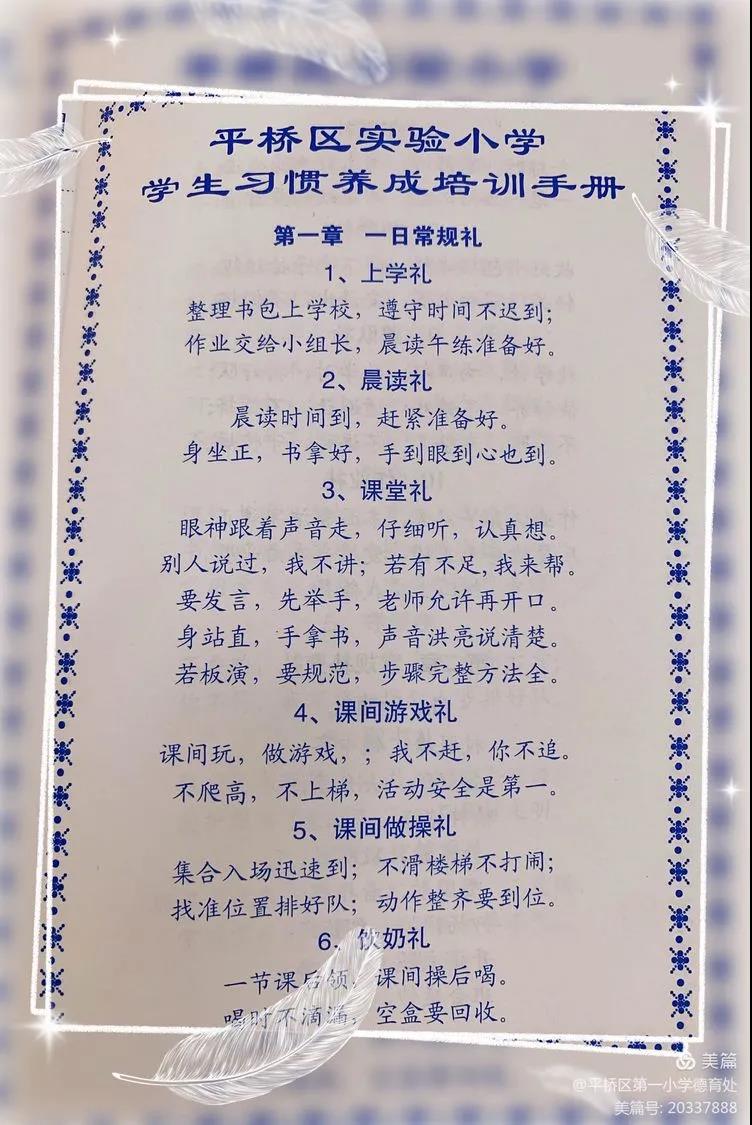 平桥区实验小学
学生习惯养成培训手册
第一章 一日常规礼
1、上学礼
整理书包上学校，遵守时间不迟到；
作业交给小组长，晨读午练准备好。
2、晨读礼
晨读时间到，赶紧准备好。
身坐正，书拿好，手到眼到心也到。
3、课堂礼
眼神跟着声音走，仔细听，认真想。
别人说过，我不讲；若有不足,我来帮。
要发言，先举手，老师允许再开口。
身站直，手拿书，声音洪亮说清楚。
若板演，要规范，步骤完整方法全。
4、课间游戏礼
课间玩，做游戏，；我不赶，你不追。
不爬高，不上梯，活动安全是第一。
5、课间做操礼
集合入场迅速到；不滑楼梯不打闹；
找准位置排好队；动作整齐要到位。
6、饮奶礼
一节课后领，课间操后喝。
喝时不滴漏，空盒要回收。
美篇
@平桥区第一小学德育处
美篇号: 20337888